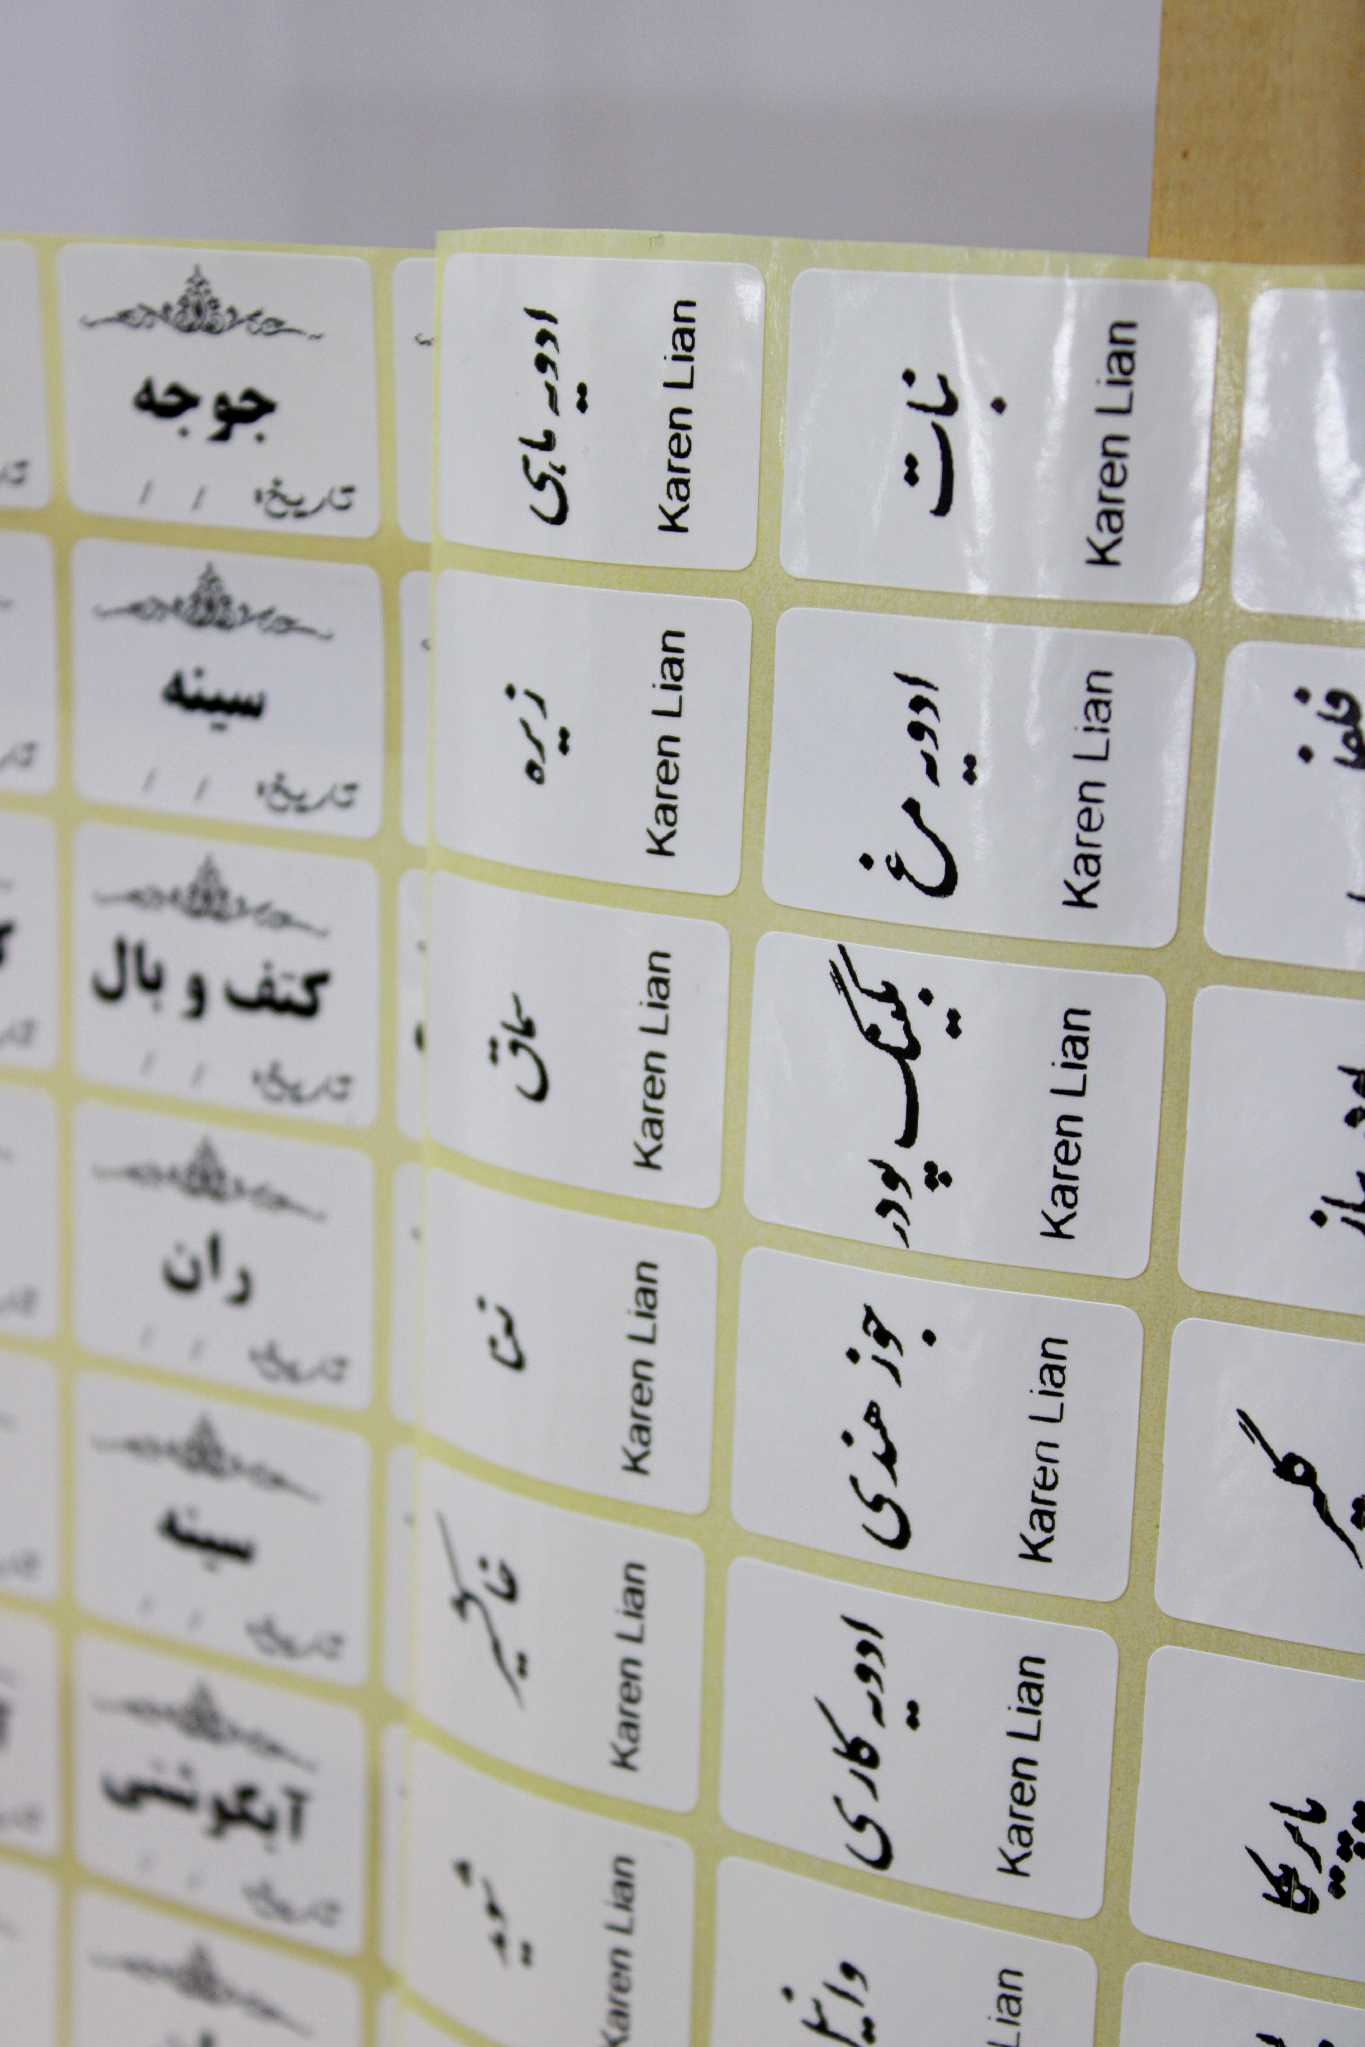 جوجه
تاریخ: / /
سینه
تاریخ: / /
کتف و بال
تاریخ: / /
ران
تاریخ: / /
سینه
تاریخ: / /
آبگوشتی
تاریخ: / /
ادویه ماهی
Karen Lian
زیره
Karen Lian
سماق
Karen Lian
Karen Lian
خاکشیر
Karen Lian
شوید
Karen Lian
نبات
Karen Lian
ادویه مرغ
Karen Lian
بکینگ پودر
Karen Lian
جوز هندی
Karen Lian
ادویه کاری
Karen Lian
Lian
پاپریکا